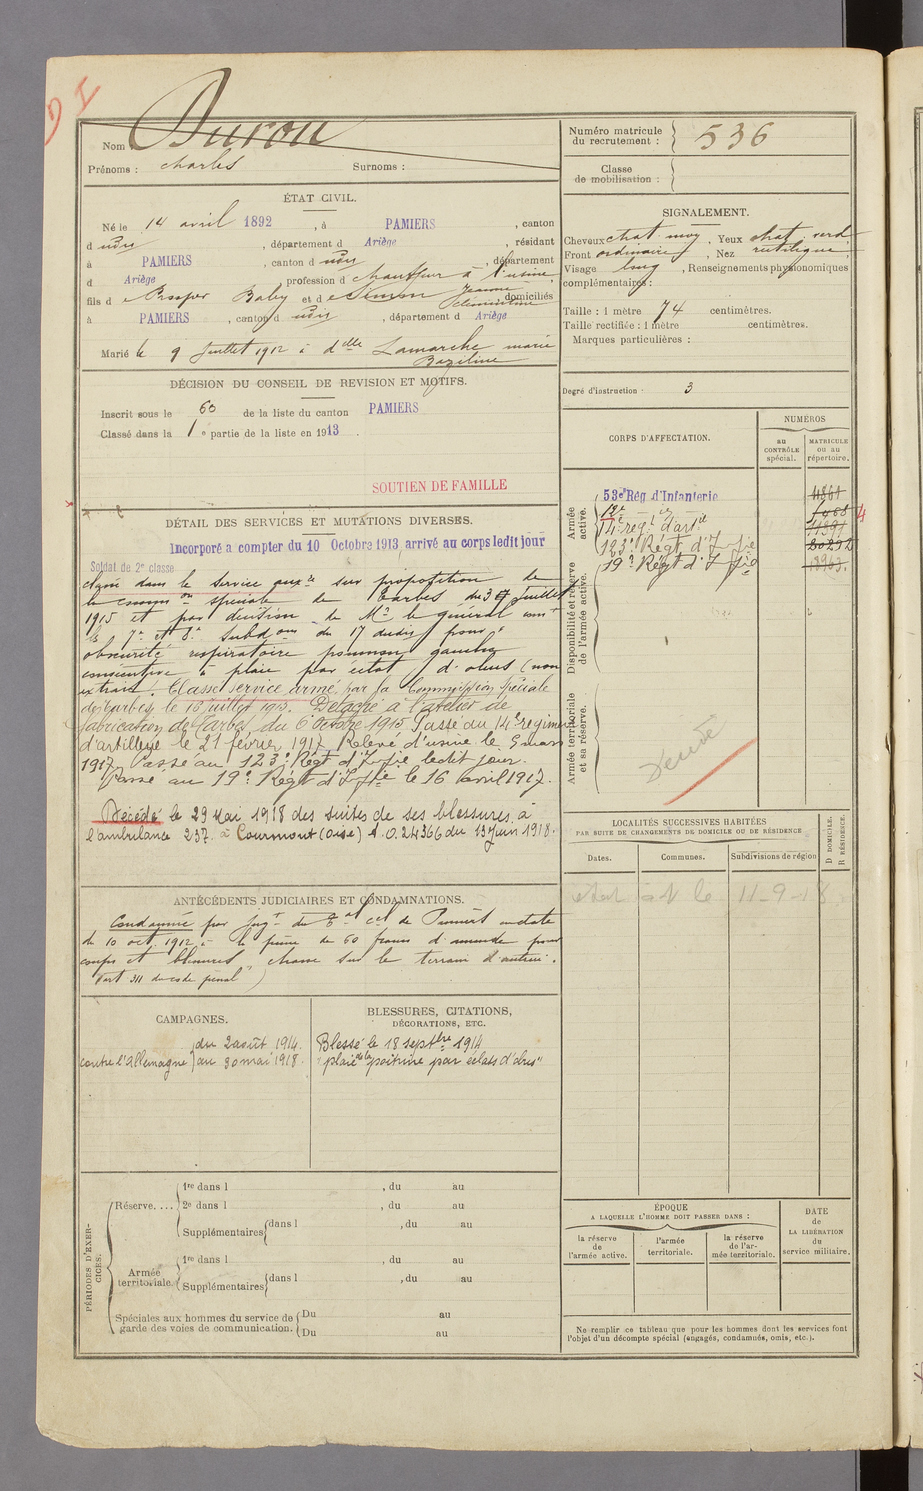 D I
Nom : Duron
Prénoms : Charles Surnoms :
Numéro matricule
du recrutement : 536
Classe
de mobilisation :
ÉTAT CIVIL.
Né le 14 avril 1892, à PAMIERS, canton
d udis, département d Ariège, résidant
à PAMIERS, canton d udis, département
d Ariège, profession d chauffeur à l'usine,
fils d e Prosper Baby et d e Simon Jeanne Clémentine domiciliés
à PAMIERS, canton d udis, département d Ariège
Marié le 9 Juillet 1912 à dlle Lamarche marie
Baziline
SIGNALEMENT.
Cheveux chat. moy, Yeux chat. verd
Front ordinaire, Nez rectiligne
Visage long, Renseignements physionomiques
complémentaires :
Taille : 1 mètre 74 centimètres.
Taille rectifiée : 1 mètre centimètres.
Marques particulières :
Degré d'instruction 3
DÉCISION DU CONSEIL DE REVISION ET MOTIFS.
Inscrit sous le 60 de la liste du canton PAMIERS
Classé dans la 1e partie de la liste en 1913.
SOUTIEN DE FAMILLE
CORPS D'AFFECTATION.
NUMÉROS
au
CONTRÔLE
spécial.
MATRICULE
ou au
répertoire.
Armée
active.
53e Rég d'Infanterie
14e regt d'artie
123e Régt d'Ifie
19e Régt d'Ifie
Disponibilité et réserve
de l'armée active.
Armée territoriale
et sa réserve.
DÉTAIL DES SERVICES ET MUTATIONS DIVERSES.
Incorporé a compter du 10 Octobre 1913, arrivé au corps ledit jour
Soldat de 2e classe
classé dans le service auxre sur proposition de
la common spéciale de Tarbes du 3 Juillet
1915 et par décision de Mr le général comt
les 7e et 8e subdons du 17 dudit pour :
obscurité respiratoire poumon gauche
consécutive à plaie par éclat d'obus (non
extrait. Classé service armé par la Commission Spéciale
de Tarbes, le 16 juillet 1915. Détaché à l'atelier de
fabrication de Tarbes, du 6 Octobre 1915. Passé au 14e régiment
d'artillerie le 21 février 1917. Relevé d'usine le 5 mars
1917. Passé au 123e Régt d'Ifie ledit jour.
Passé au 19e Régt d'Ifie le 16 avril 1917.
Décédé le 29 Mai 1918 des suites de ses blessures, à
l'ambulance 237 à Courmont (Oise) A.O. 24366 du 13 Juin 1918.
LOCALITÉS SUCCESSIVES HABITÉES
PAR SUITE DE CHANGEMENTS DE DOMICILE OU DE RÉSIDENCE
D DOMICILE.
R RÉSIDENCE.
Dates.
Communes.
Subdivisions de région
11-9-18
ANTÉCÉDENTS JUDICIAIRES ET CONDAMNATIONS.
Condamné par jugt du tal cel de Pamiers en date
du 10 oct. 1912 à la peine de 60 francs d'amende pour
coups et blessures, chasse sur le terrain d'autrui.
(art 311 du code pénal)
CAMPAGNES.
contre l'Allemagne } du 2 août 1914
au 30 mai 1918.
BLESSURES, CITATIONS,
DÉCORATIONS, ETC.
Blessé le 18 septbre 1914
"plaie de la poitrine par éclats d'obus"
PÉRIODES D'EXERCICES.
Réserve....
1re dans l , du au
2e dans l , du au
Supplémentaires dans l , du au
Armée
territoriale.
1re dans l , du au
Supplémentaires dans l , du au
Spéciales aux hommes du service de
garde des voies de communication.
Du au
Du au
ÉPOQUE
A LAQUELLE L'HOMME DOIT PASSER DANS :
la réserve
de
l'armée active.
l'armée
territoriale.
la réserve
de l'ar-
mée territoriale.
DATE
de
LA LIBÉRATION
du
service militaire.
Ne remplir ce tableau que pour les hommes dont les services font
l'objet d'un décompte spécial (engagés, condamnés, omis, etc.).